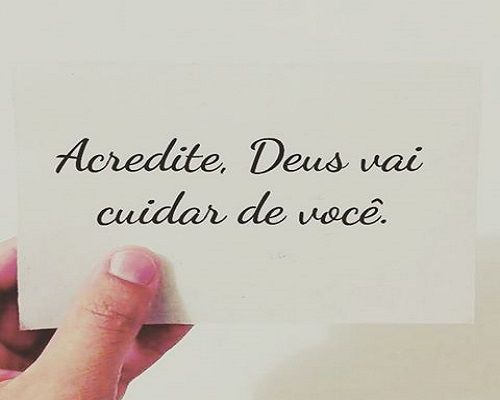 Acredite, Deus vai
cuidar de você.